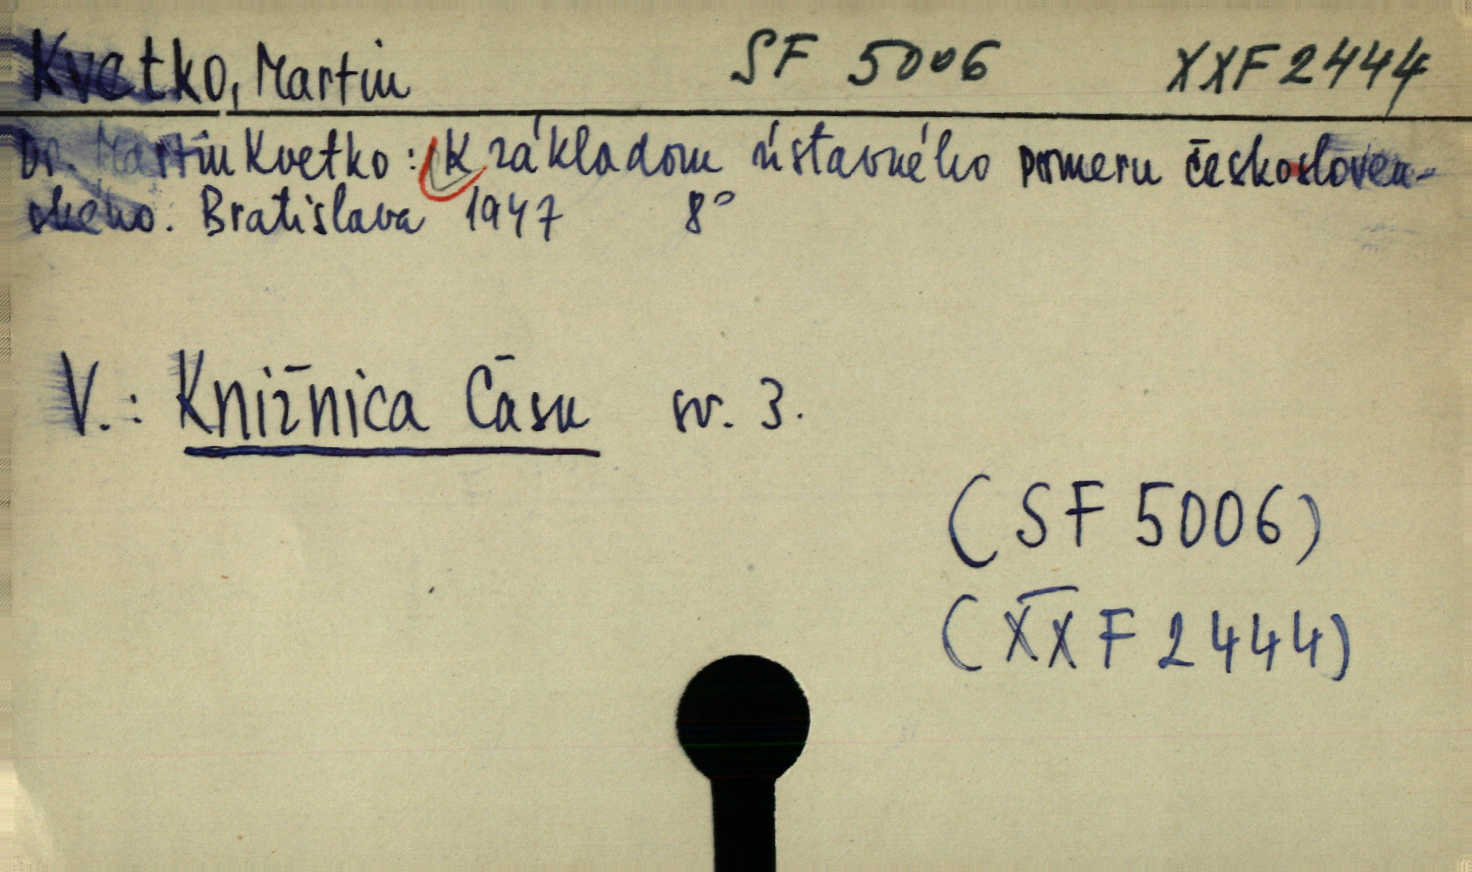 Kvetko, Martin SF 5006 XXF 2444
Dr. Martin Kvetko: K základom ústavného pomeru českosloven-
ského. Bratislava 1947 8°
V.: Knižnica Času sv. 3.
(SF 5006)
(XXF 2444)